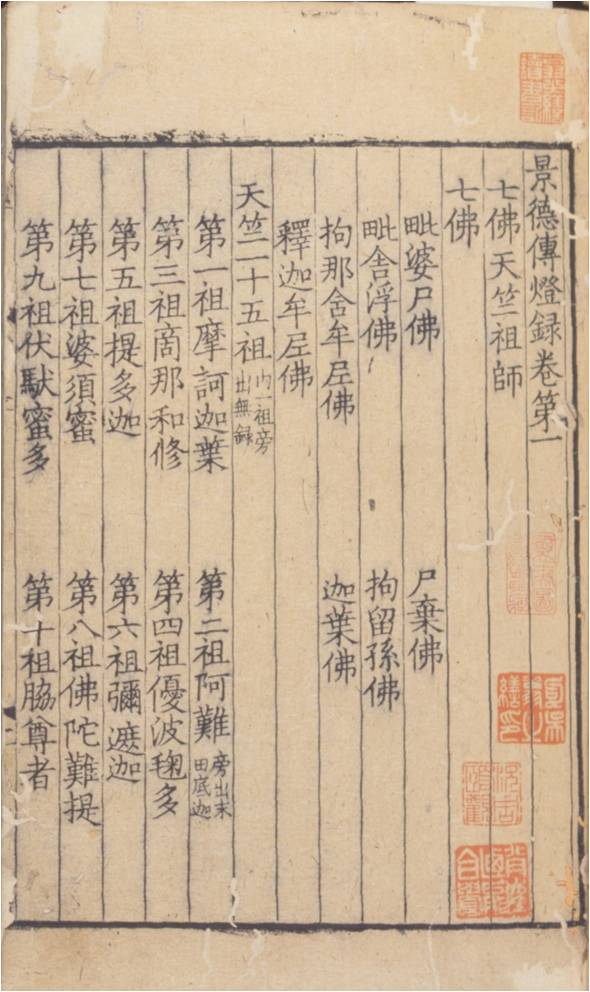 景德傳燈録卷第一
七佛天竺祖師
七佛
毗婆尸佛　尸棄佛
毗舍浮佛　拘留孫佛
拘那舍牟尼佛　迦葉佛
釋迦牟尼佛
天竺一十五祖 内一祖旁出無録
第一祖摩訶迦葉　第二祖阿難 旁出末田底迦
第三祖商那和修　第四祖優波毱多
第五祖提多迦　第六祖彌遮迦
第七祖婆須蜜　第八祖佛陀難提
第九祖伏馱蜜多　第十祖脇尊者